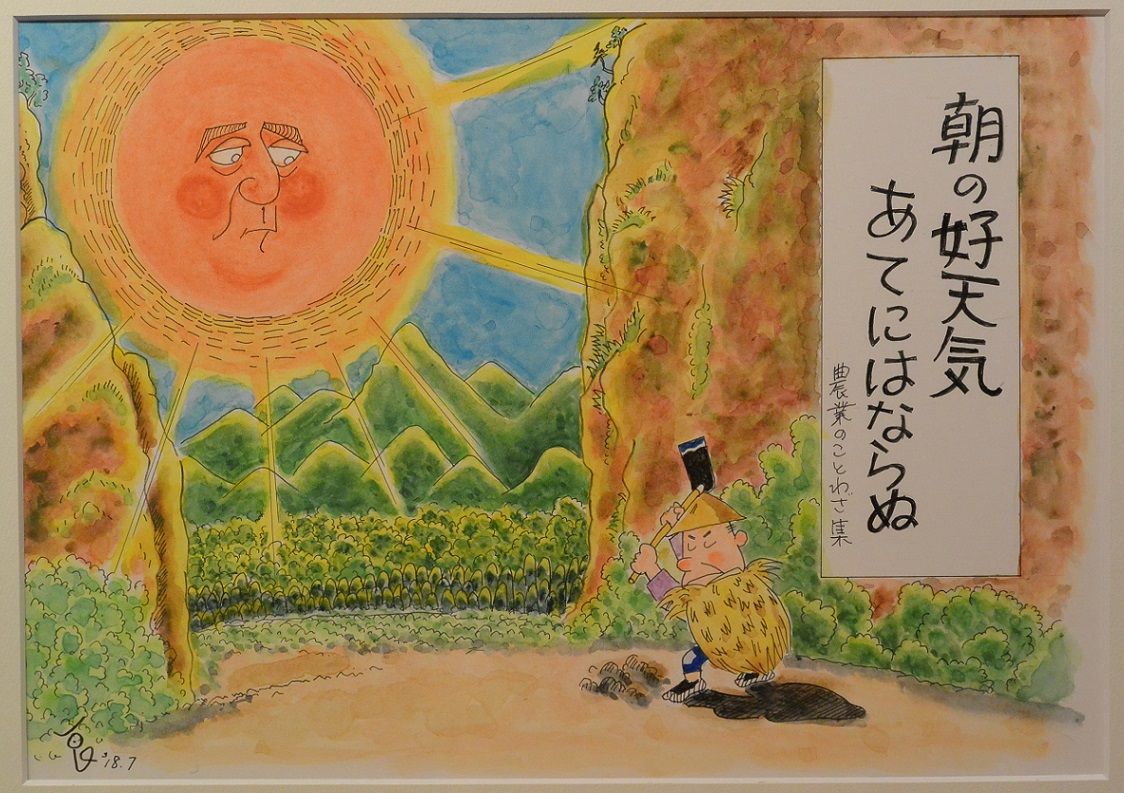 朝の好天気
あてにはならぬ
農業のことわざ集
'18.7